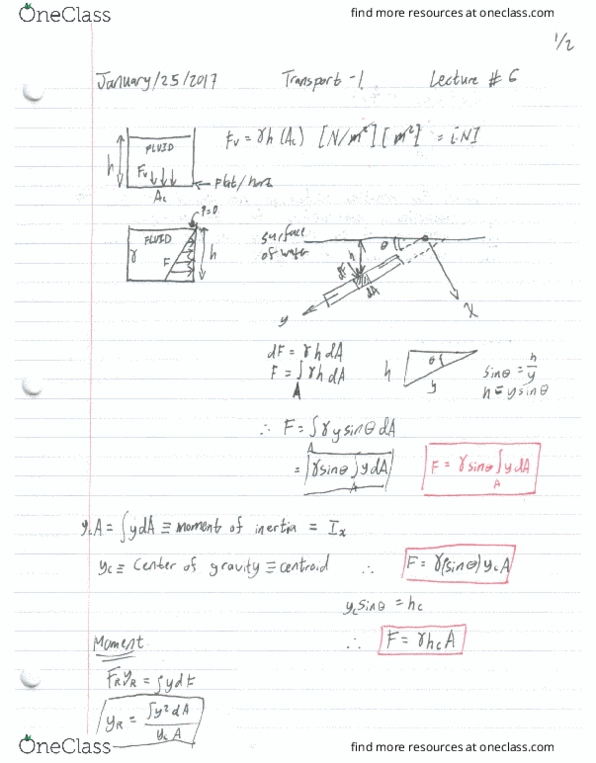 OneClass
find more resources at oneclass.com
1/2
January/25/2017 Transport-1 Lecture #6
h FLUID Fv Ac
Fv = γh (Ac) [N/m²][m²] = [N]
← flat/horiz
P=0
FLUID γ F h
surface of water
θ h dF dA y x
dF = γ h dA
F = ∫ γ h dA
A
h θ y
sinθ = h/y
h = y sinθ
∴ F = ∫ γ y sinθ dA
A
= γ sinθ ∫ y dA
A
F = γ sinθ ∫ y dA
A
ycA = ∫ y dA ≡ moment of inertia = Ix
yc ≡ Center of gravity ≡ centroid ∴ F = γ(sinθ) ycA
yc sinθ = hc
∴ F = γhcA
Moment
FRyR = ∫ y dF
yR = ∫y² dA / yc A
OneClass
find more resources at oneclass.com